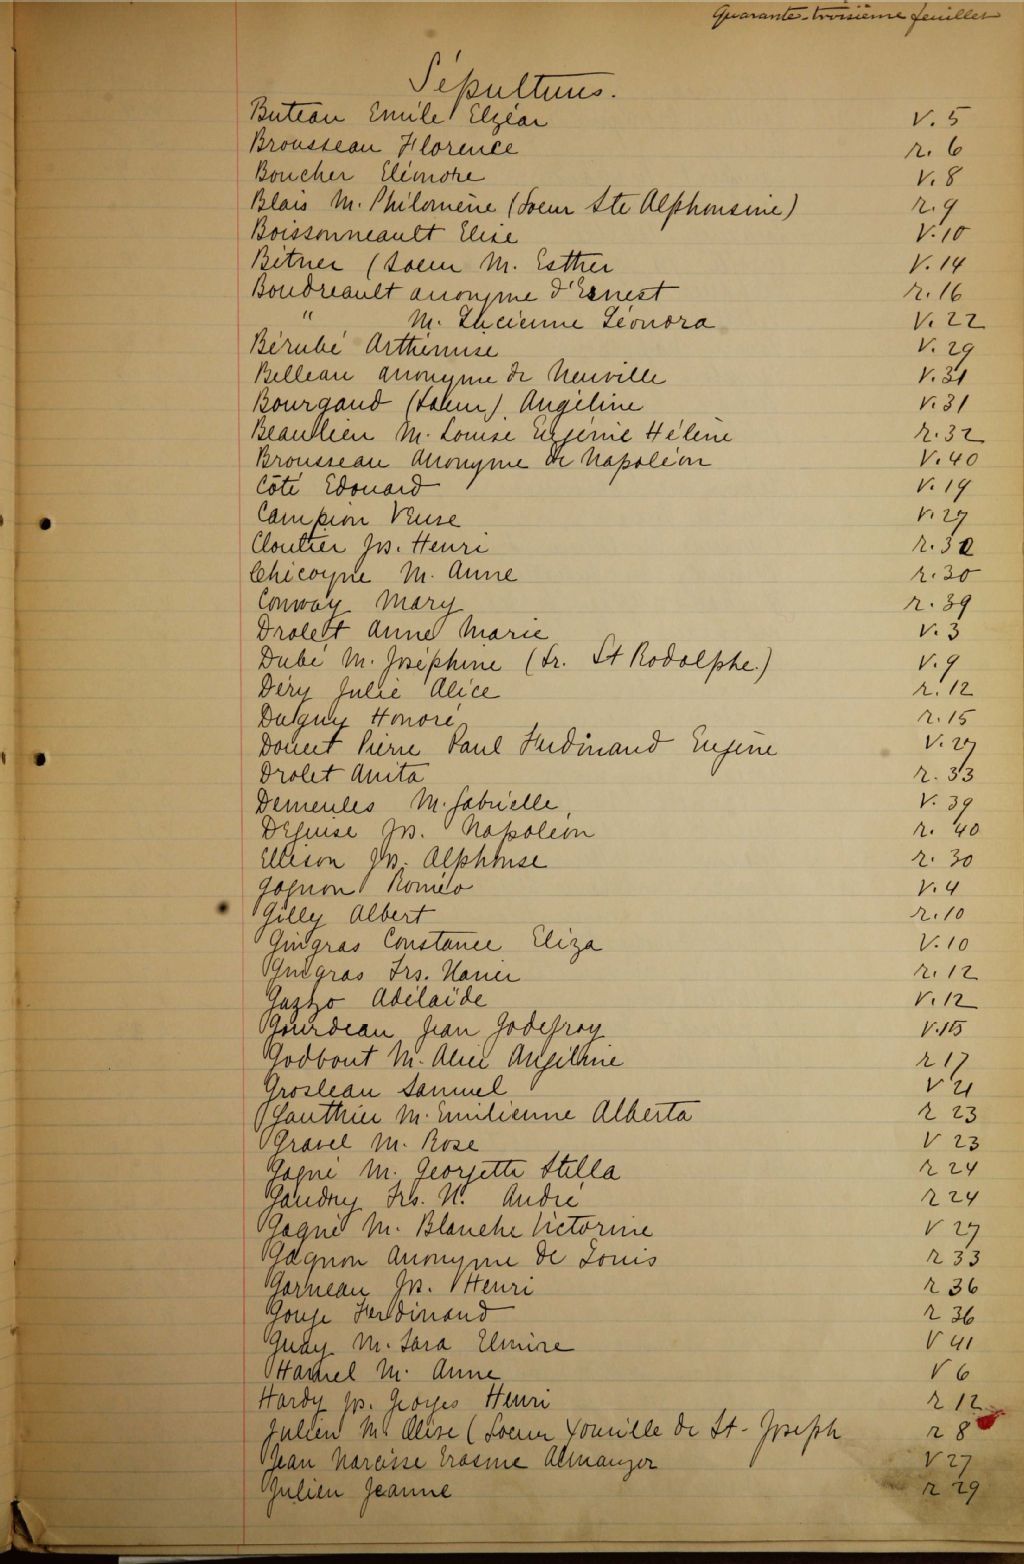 Quarante-troisième feuillet
Sépultures.
Buteau Emile Elzéar V. 5
Brousseau Florence r. 6
Boucher Eléonore V. 8
Blais M. Philomène (Soeur Ste Alphonsine) r. 9
Boissonneault Elise V. 10
Bitner (Soeur M. Esther V. 14
Boudreault anonyme d'Ernest r. 16
" M. Lucienne Léonora V. 22
Bérubé Arthémise V. 29
Belleau anonyme de Neuville V. 31
Bourgaud (Soeur) Angéline V. 31
Beaulieu M. Louise Eugénie Hélène r. 32
Brousseau Anonyme de Napoléon V. 40
Côté Edouard V. 19
Campion V. 27
Cloutier Jos. Henri r. 30
Chicoyne M. Anne r. 30
Conway Mary r. 39
Drolet Anne Marie V. 3
Dubé M. Joséphine (Sr. St Rodolphe.) V. 9
Déry Julie Alice r. 12
Duguy Honoré r. 15
Douet Pierre Paul Ferdinand Eugène V. 27
Drolet Anita r. 33
Demeules M. Gabrielle V. 39
Deguise Jos. Napoléon r. 40
Ellison Jos. Alphonse r. 30
Gagnon Roméo V. 4
Gilly Albert r. 10
Gingras Constance Eliza V. 10
Gingras Frs. Xavier r. 12
Gazzo Adélaïde V. 12
Gourdeau Jean Godefroy V. 15
Godbout M. Alice Angéline r 17
Grosleau Samuel V 21
Gauthier M. Emilienne Alberta r 23
Gravel M. Rose V 23
Gagné M. Georgette Stella r 24
Gaudry Frs. X. André r 24
Gagné M. Blanche Victorine V 27
Gagnon Anonyme de Louis r 33
Garneau Jos. Henri r 36
Gouge Ferdinand r 36
Guay M. Sara Elmire V 41
Hamel M. Anne V 6
Hardy Jos. Georges Henri r 12
Julien M. Elise (Soeur Youville de St-Joseph r 8
Jean Narcisse Erasme Almanzor V 27
Julien Jeanne r 29